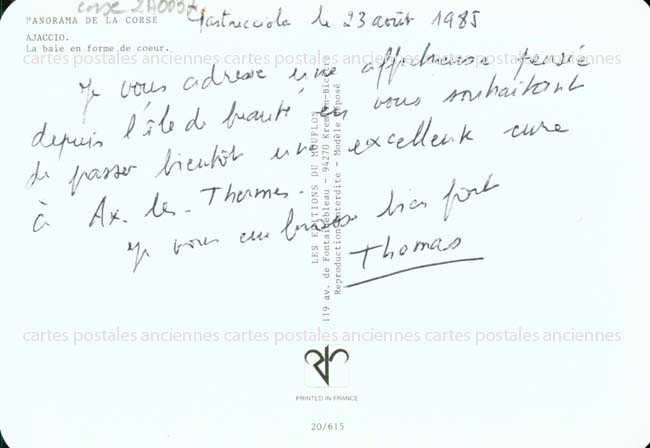 corse 2A005
PANORAMA DE LA CORSE
AJACCIO.
La baie en forme de coeur.
le 23 août 1985
cartes postales anciennes cartes postales anciennes cartes postales anciennes
Je vous adresse une affectueuse pensée
depuis l'île de beauté en vous souhaitant
de passer bientôt une excellente cure
à Ax-les-Thermes.
Je vous embrasse bien fort
Thomas
LES EDITIONS DU MOUFLON
119 av. de Fontainebleau - 94270 Kremlin-Bicêtre
Reproduction interdite - Modèle déposé
cartes postales anciennes cartes postales anciennes cartes postales anciennes
PRINTED IN FRANCE
20/615